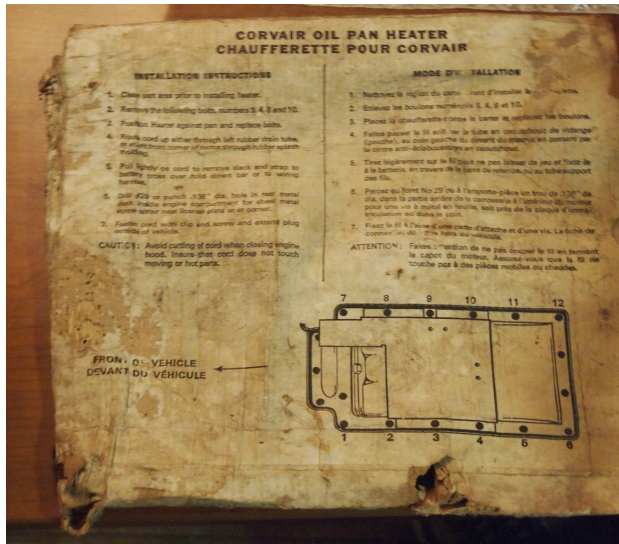 CORVAIR OIL PAN HEATER
CHAUFFERETTE POUR CORVAIR
INSTALLATION INSTRUCTIONS
1. Clean pan area prior to installing heater.
2. Remove the following bolts, numbers 3, 4, 8 and 10.
3. Position Heater against pan and replace bolts.
4. Route cord up either through left rubber drain tube,
or at left front corner of motor through rubber splash
shielding.
5. Pull lightly on cord to remove slack and strap to
battery cross over hold down bar or to wiring
harness.
6. Drill #29 or punch .136" dia. hole in rear metal
deck inside engine compartment for sheet metal
screw either near license plate or at corner.
7. Fasten cord with clip and screw and extend plug
outside of vehicle.
CAUTION: Avoid cutting of cord when closing engine
hood. Insure that cord does not touch
moving or hot parts.
MODE D' ALLATION
1. Nettoyez la région du carter avant d'installer
2. Enlevez les boulons numéros 3, 4, 8 et 10.
3. Placez la chaufferette contre le carter et replacez les boulons.
4. Faites passer le fil soit par le tube en caoutchouc de vidange
(gauche), au coin gauche du devant du moteur en passant par
le contre-éclaboussage en caoutchouc.
5. Tirez légèrement sur le fil pour ne pas laisser de jeu et fixez-le
à la batterie, en travers de la barre de retenue, ou au tube support
des fils.
6. Percez au foret No 29 ou à l'emporte-pièce un trou de .136" de
dia. dans la partie arrière de la carrosserie à l'intérieur du moteur
pour une vis à métal en feuille, soit près de la plaque d'immatriculation
ou dans le coin.
7. Fixez le fil à l'aide d'une patte d'attache et d'une vis. La fiche de
du véhicule.
ATTENTION: Faites attention de ne pas couper le fil en fermant
le capot du moteur. Assurez-vous que le fil ne
touche pas à des pièces mobiles ou chaudes.
7 8 9 10 11 12
FRONT OF VEHICLE
DEVANT DU VÉHICULE
1 2 3 4 5 6